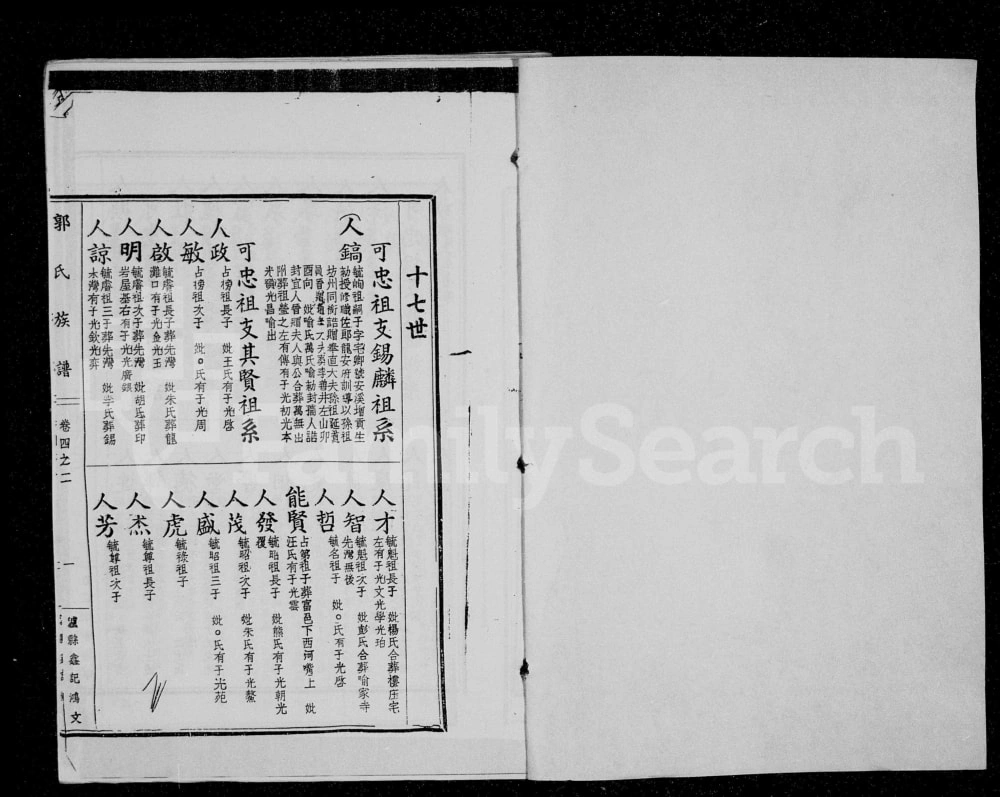 十七世
可忠祖支錫麟祖系
人鎬
毓峋祖嗣子字宅卿號安溪增貢生
勅授修職佐郎龍安府訓導以孫祖
坊州同銜誥贈奉直大夫孫祖
酉向 妣喻氏萬氏喻勅封孺人誥
封宜人晉 夫人與公合葬萬無出
附葬祖塋之左有傳有子光初光本
光碘光昌喻出
可忠祖支其賢祖系
人政
占榜祖長子 妣王氏有子光啓
人敏
占榜祖次子 妣○氏有子光周
人啟
毓膺祖長子葬先灣 妣朱氏葬龍
灘口有子光金光玉
人明
毓膺祖次子葬先灣 妣胡氏葬印
岩屋基右有子光光廣銀
人諒
毓膺祖三子葬先灣 妣李氏葬錫
木灣有子光欽光弈
人才
毓魁祖長子 妣楊氏合葬樓庄宅
左有子光文光學光珀
人智
毓魁祖次子 妣彭氏合葬喻家寺
先灣無後
人哲
毓名祖子 妣○氏有子光啓
能賢
占第祖子葬富邑下西河嘴上 妣
汪氏有子光雲
人發
毓昭祖長子 妣熊氏有子光朝光
覆
人茂
毓昭祖次子 妣朱氏有子光鰲
人盛
毓昭祖三子 妣○氏有子光苑
人虎
毓祿祖子
人杰
毓尊祖長子
人芳
毓尊祖次子
郭氏族譜
卷四之二
一
瀘縣鑫記鴻文
FamilySearch